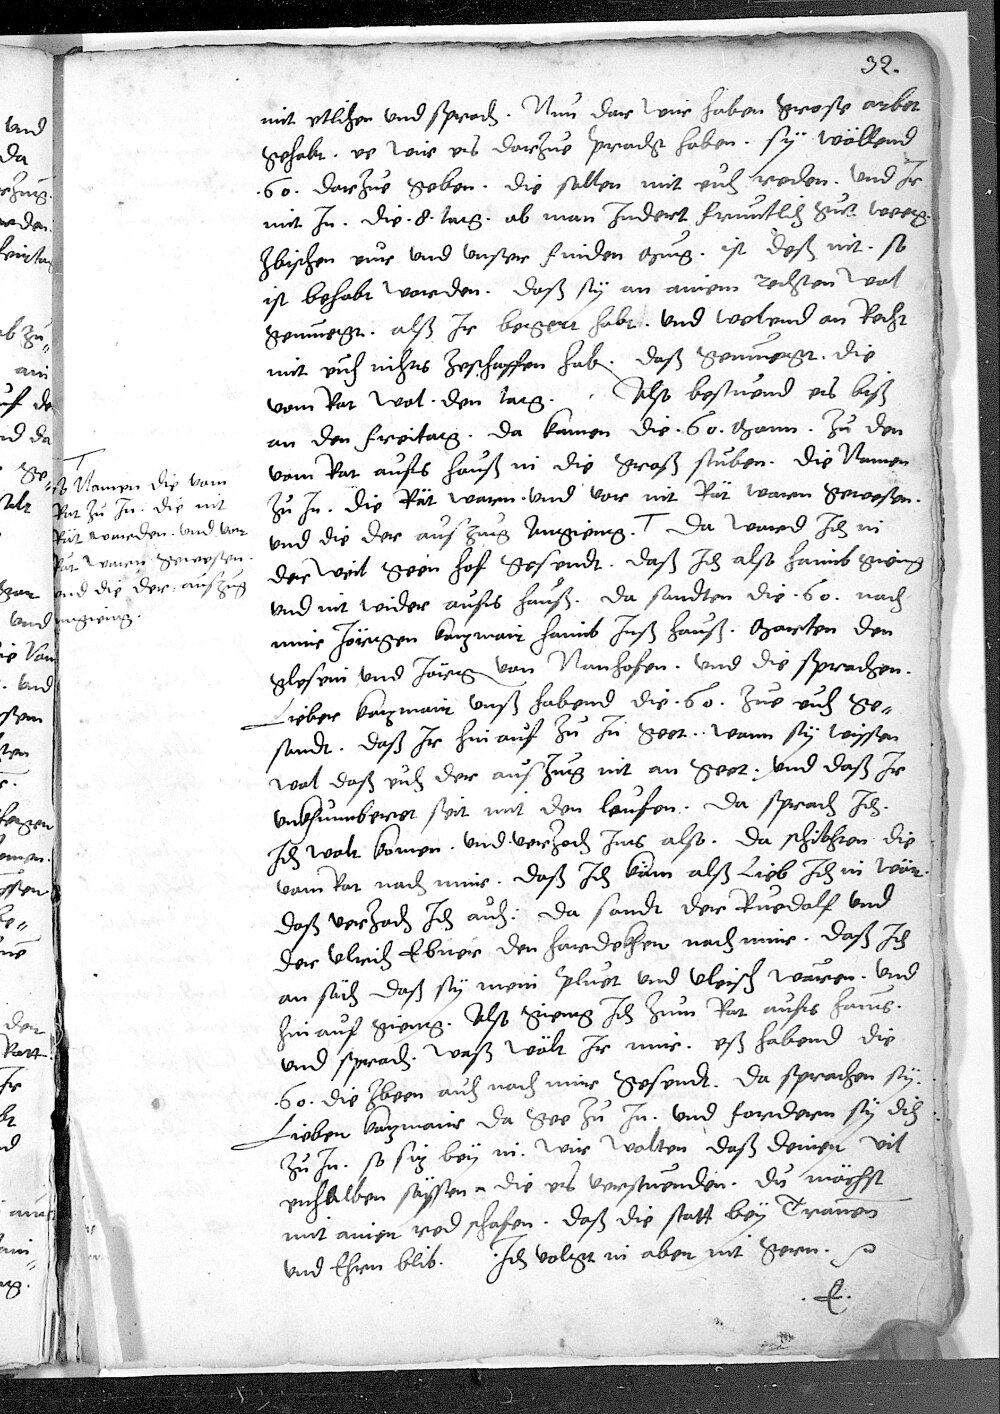 32.
mit etlichen und sprach. Nun dar wir haben grose arbet
gehabt. ee wir es darzue pracht haben. sy wöllend
.60. darzue geben. die sollen mit euch reden. und Ir
mit In. die .8. tag. ob man Indert fruntlich gut weeg.
zbischen eur und unser finden mug. ist deß nit. so
ist behabt worden. daß sy an ainem rechten wol
genuegt. alß Ir begert habt. und welend an Recht
mit euch nichts zeschaffen hab. daß genuegt. die
vom Rat wol. den tag. Also bestuend es biß
an den freitag. da kamen die .60. Mann. zu den
vom Rat aufs hauß in die groß stuben. die Namen
zu In. die Rät waren. und vor nit Rät waren gewesen.
und die der aufzug angieng. T Da ward Ich in
der weil geen hof gesendt. daß Ich also haimb gieng
und nit wider aufs hauß. da sandten die .60. nach
mir Jörgen kazmair haimb Inß hauß. Marten den
glesein und Jörg von Nanhofen. und die sprachen.
Lieber kazmair unß habend die .60. zue euch ge„
sandt. daß Ir hinauf zu In geet. wann sy wissen
wol daß euch der aufzug nit an geet: und daß Ir
unkhumberet seit mit den leufen. da sprach Ich.
Ich wolt komen. und verzoch Ins also. da schikhten die
vom Rat nach mir. daß Ich käm alß Lieb Ich in wär.
daß verzoch Ich auch: da sandt der Ruedolf und
der Ulrich Ebner den hardekher nach mir. daß Ich
an säch daß sy mein pluet und vleisch waren. und
hinauf gieng. Also gieng Ich zum Rat aufs haus.
und sprach. waß wölt Ir mir. eß habend die
.60. die zbeen auch nach mir gesendt. da sprachen sy.
Lieber kazmair da gee zu In. und fordern sy dich
zu In. so siz bey in. wir wolten daß deiner vil
enhalben sässen. die es verstuenden. du möchst
mit ainer red schafen. daß die statt bey Trauen
und Ehrn blib. Ich volgt in aber nit gern.
T
Namen die vom
Rat zu In. die nit
Rät wurden. und vor
Rät waren gewesen.
und die der. aufzug
angieng.